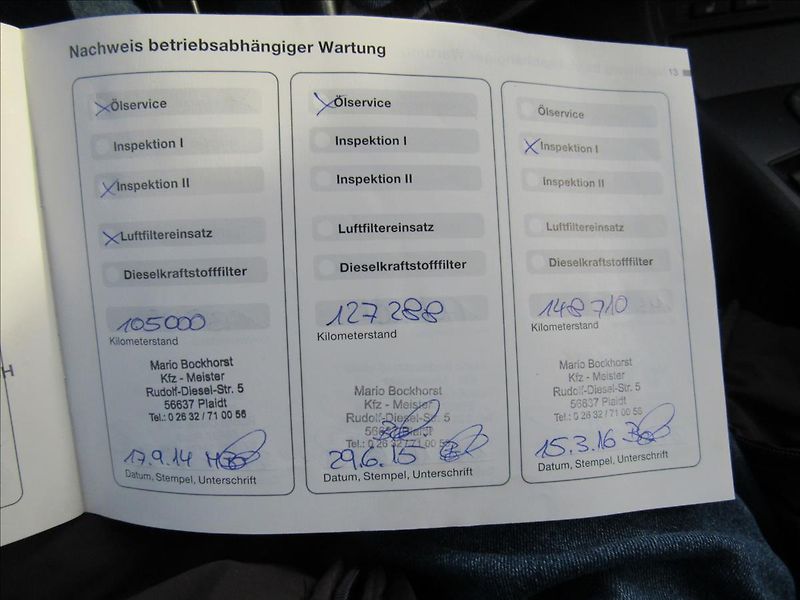 Nachweis betriebsabhängiger Wartung
13
Ölservice
Inspektion I
Inspektion II
Luftfiltereinsatz
Dieselkraftstofffilter
105000
Kilometerstand
Mario Bockhorst
Kfz - Meister
Rudolf-Diesel-Str. 5
56637 Plaidt
Tel.: 0 26 32 / 71 00 56
17.9.14
Datum, Stempel, Unterschrift
Ölservice
Inspektion I
Inspektion II
Luftfiltereinsatz
Dieselkraftstofffilter
127288
Kilometerstand
Mario Bockhorst
Kfz - Meister
Rudolf-Diesel-Str. 5
56637 Plaidt
Tel.: 0 26 32 / 71 00 56
29.6.15
Datum, Stempel, Unterschrift
Ölservice
Inspektion I
Inspektion II
Luftfiltereinsatz
Dieselkraftstofffilter
148710
Kilometerstand
Mario Bockhorst
Kfz - Meister
Rudolf-Diesel-Str. 5
56637 Plaidt
Tel.: 0 26 32 / 71 00 56
15.3.16
Datum, Stempel, Unterschrift